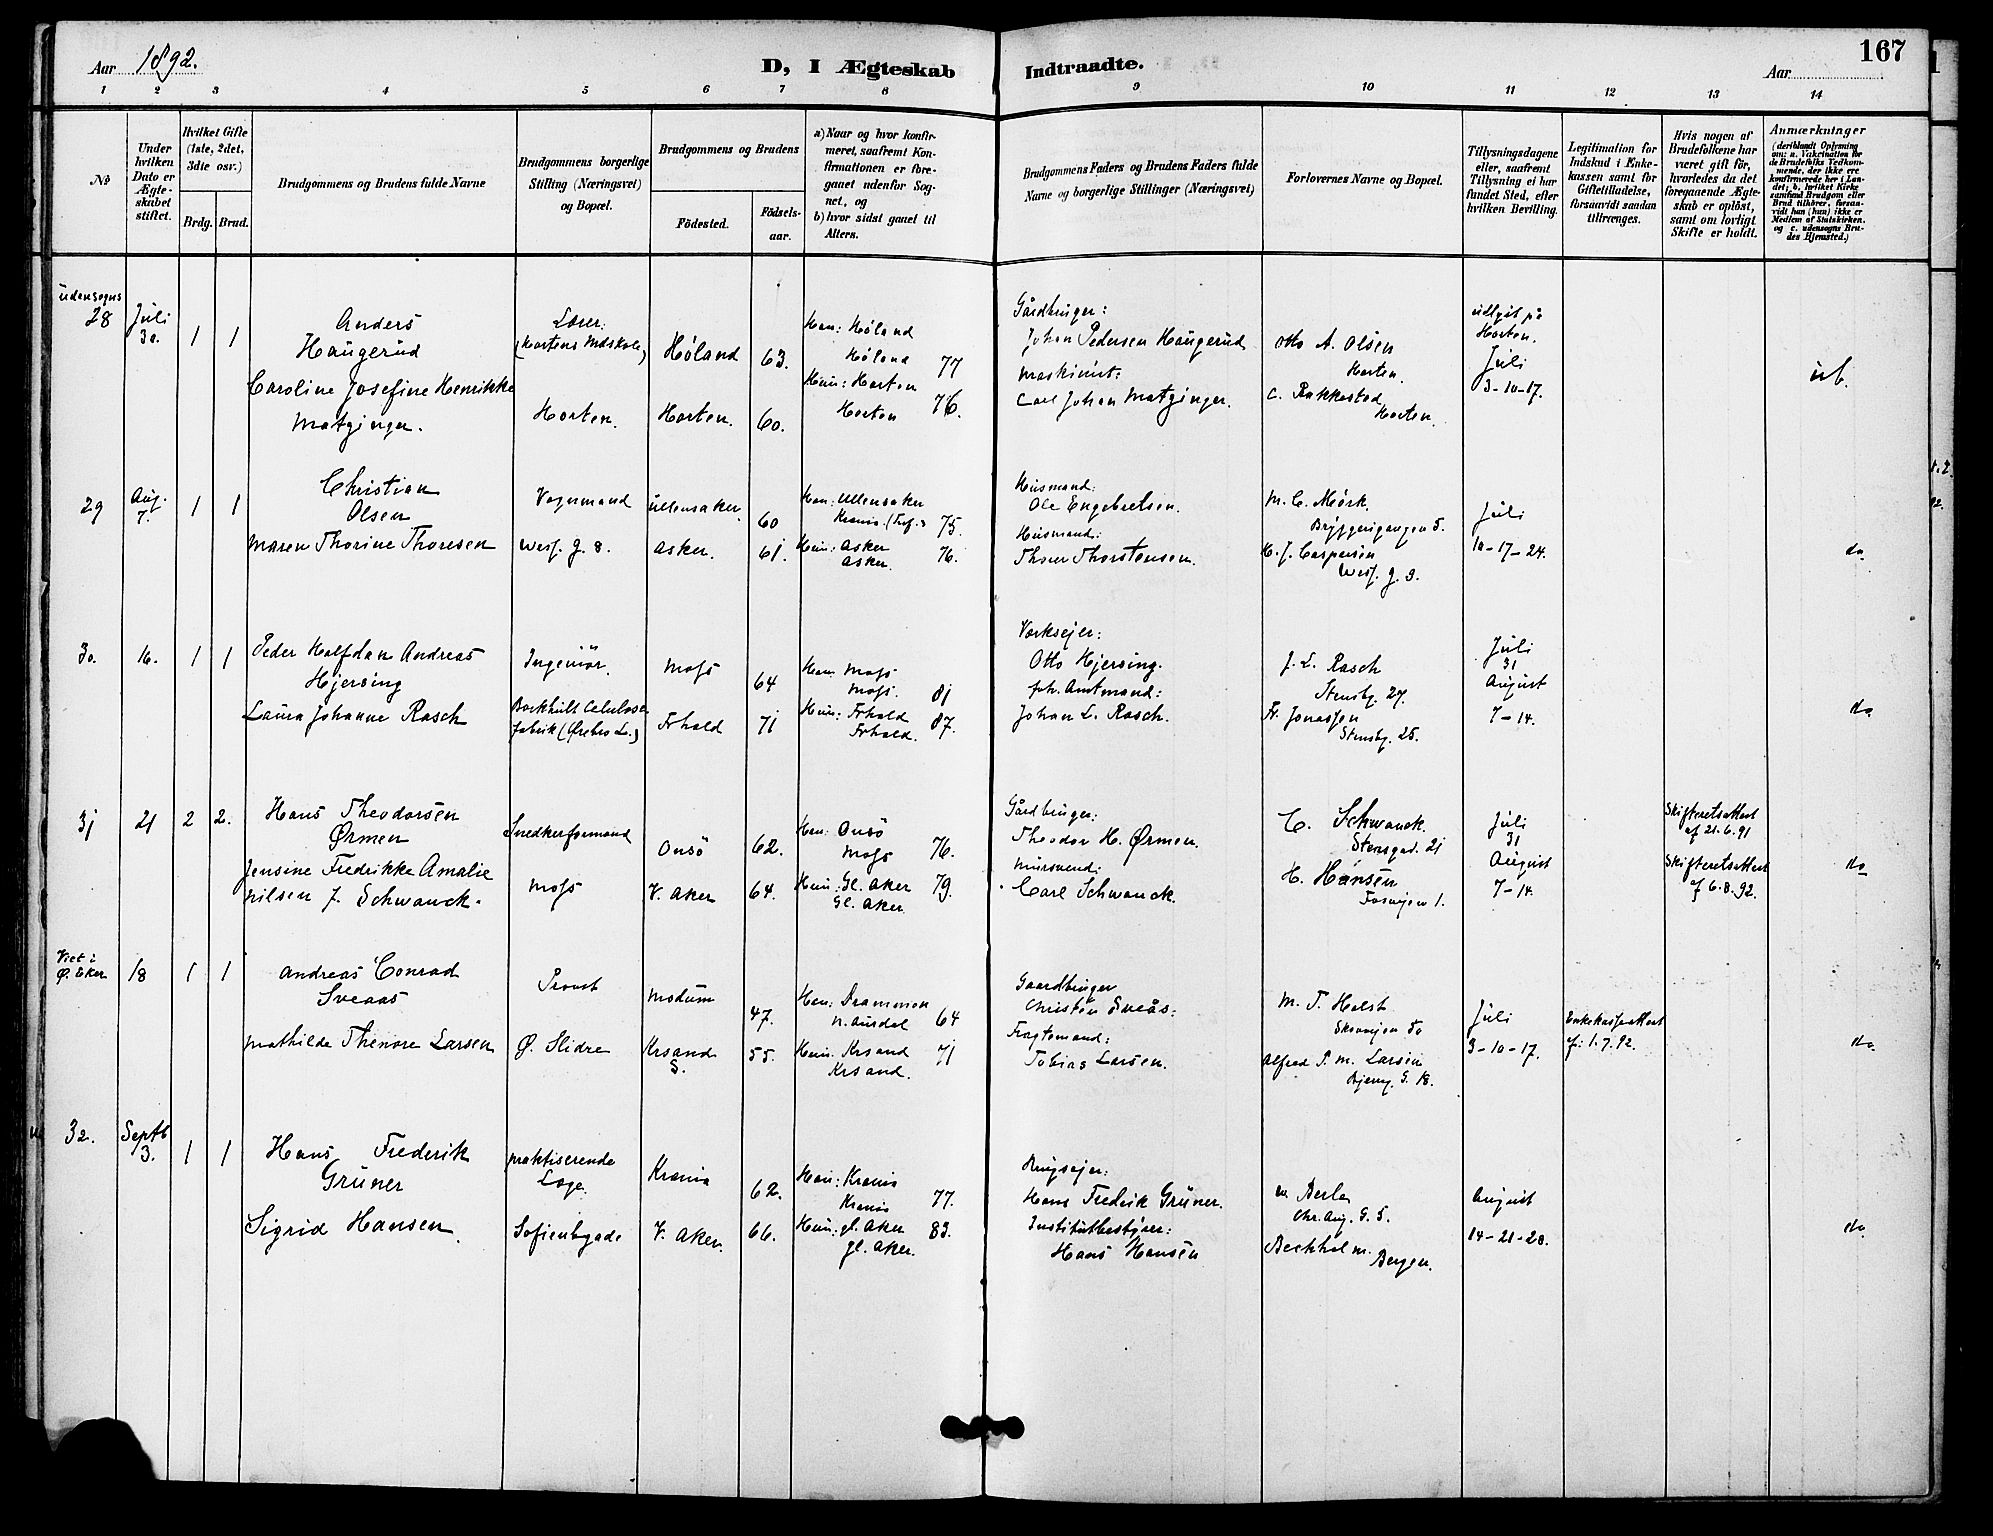 Aar 1892.
D, I Ægteskab Indtraadte.
Aar
167
1 2 3 4 5 6 7 8 9 10 11 12 13 14
No
Under hvilken Dato er Ægteskabet stiftet.
Hvilket Gifte (1ste, 2det, 3die osv.)
Brdg. Brud.
Brudgommens og Brudens fulde Navne
Brudgommens borgerlige Stilling (Næringsvei) og Bopæl.
Brudgommens og Brudens
Födested.
Födselsaar.
a) Naar og hvor konfirmeret, saafremt Konfirmationen er foregaaet udenfor Sognet, og
b) hvor sidst gaaet til Alters.
Brudgommens Faders og Brudens Faders fulde Navne og borgerlige Stillinger (Næringsvei)
Forlovernes Navne og Bopæl.
Tillysningsdagene eller, saafremt Tillysning ei har fundet Sted, efter hvilken Bevilling.
Legitimation for Indskud i Enkekassen samt for Giftetilladelse, forsaavidt saadan tiltrænges.
Hvis nogen af Brudefolkene har været gift för, hvorledes da det foregaaende Ægteskab er oplöst, samt om lovligt Skifte er holdt.
Anmærkninger (deriblandt Oplysning om: a. Vakcination for de Brudefolks Vedkommende, der ikke ere konfirmerede her i Landet; b. hvilket Kirke samfund Brudgom eller Brud tilhörer, forsaavidt han (hun) ikke er Medlem af Statskirken, og c. udensogns Brudes Hjemsted.)
udensogns
28
Juli
30
1 1
Anders
Haugerud
Caroline Josefine Henrikke
Matzinger.
Lærer
(Hortens Mdskole)
Horten.
Høland 63.
Horten. 60.
Han: Høland
Høland 77
Hun: Horten
Horten 76.
Gårdbruger:
Johan Pedersen Haugerud
Maskinist:
Carl Johan Matzinger.
Otto A. Olsen
Horten.
C. Rakkestad
Horten.
udlyst på
Horten.
Juli
3-10-17.
ub.
29
Aug.
7.
1 1
Christian
Olsen
Maren Thorine Thoresen
Vognmand
Wesf. g. 8.
Ullensaker. 60
Asker. 61.
Han: Ullensaker
Krania. (Trf.) 75.
Hun: Asker
Asker. 76.
Husmand:
Ole Engebretsen.
Husmand:
Thore Thorstensen.
M. C. Mørk.
Bryggerigangen 5.
H. J. Caspersen
Wesf. g. 9.
Juli
10-17-24.
do
30.
16.
1 1
Peder Halfdan Andreas
Hjersing
Laura Johanne Rasch
Ingeniör.
Bockhult Celulose
fabrik (Ørebro L.)
Moss 64
Frhald 71
Han: Moss
Moss. 81
Hun: Frhald
Frhald. 87.
Værksejer:
Otto Hjersing.
fhv. Amtmand:
Johan L. Rasch.
J. L. Rasch
Stensbg. 27.
Fr. Jonassen
Stensbg. 25.
Juli
31
August
7-14.
do.
31
21
2 2.
Hans Theodorsen
Ørmen
Jensine Fredrikke Amalie
Nilsen f. Schwanck.
Snedkerformand
Moss
Onsö 62.
V. Aker 64.
Han: Onsö
Moss 76.
Hun: Gl. Aker 79.
Gl. Aker
Gårdbruger:
Theodor H. Ørmen.
Mursvend:
Carl Schwanck.
C. Schwanck.
Stensgad. 21
H. Hansen
Fosvejen 1.
Juli
31
August
7-14.
Skifteretsattest
af 21.6.91
Skifteretsattest
af 6.8.92.
do
Viet i
Ø. Eker
18
1 1
Andreas Conrad
Sveaas
Mathilde Thenore Larsen
Provst
Ø. Slidre
Modum 47.
Krsand S. 55.
Han: Drammen
N. Aurdal 64
Hun: Krsand 71
Krsand.
Gaardbruger
Christen Sveås:
Fragtemand:
Tobias Larsen.
M. T. Holst
Skovvejen 50
Alfred T. M. Larsen
Bjerreg. G. 18.
Juli
3-10-17.
Enkekasseattest
af: 1.7.92.
do.
32.
Septb
3.
1 1
Hans Frederik
Grüner
Sigrid Hansen.
praktiserende
Læge.
Sofienbgade
Krania 62.
V. Aker. 66.
Han: Krania
Krania 77.
Hun: gl. Aker 83.
gl. Aker.
Brugsejer:
Hans Fredrik Grüner.
Institutbestyrer:
Hans Hansen
W. Berle
Chr. Aug. G. 5.
Beckholm.
Bergen.
August
14-21-28.
do